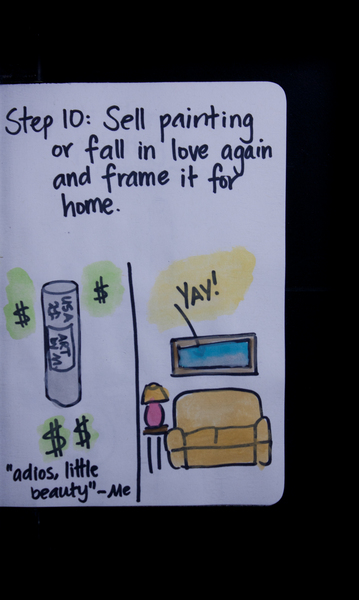 Step 10: Sell painting
or fall in love again
and frame it for
home.
$
$
USA
ART
$ $
"adios, little
beauty" -Me
YAY!